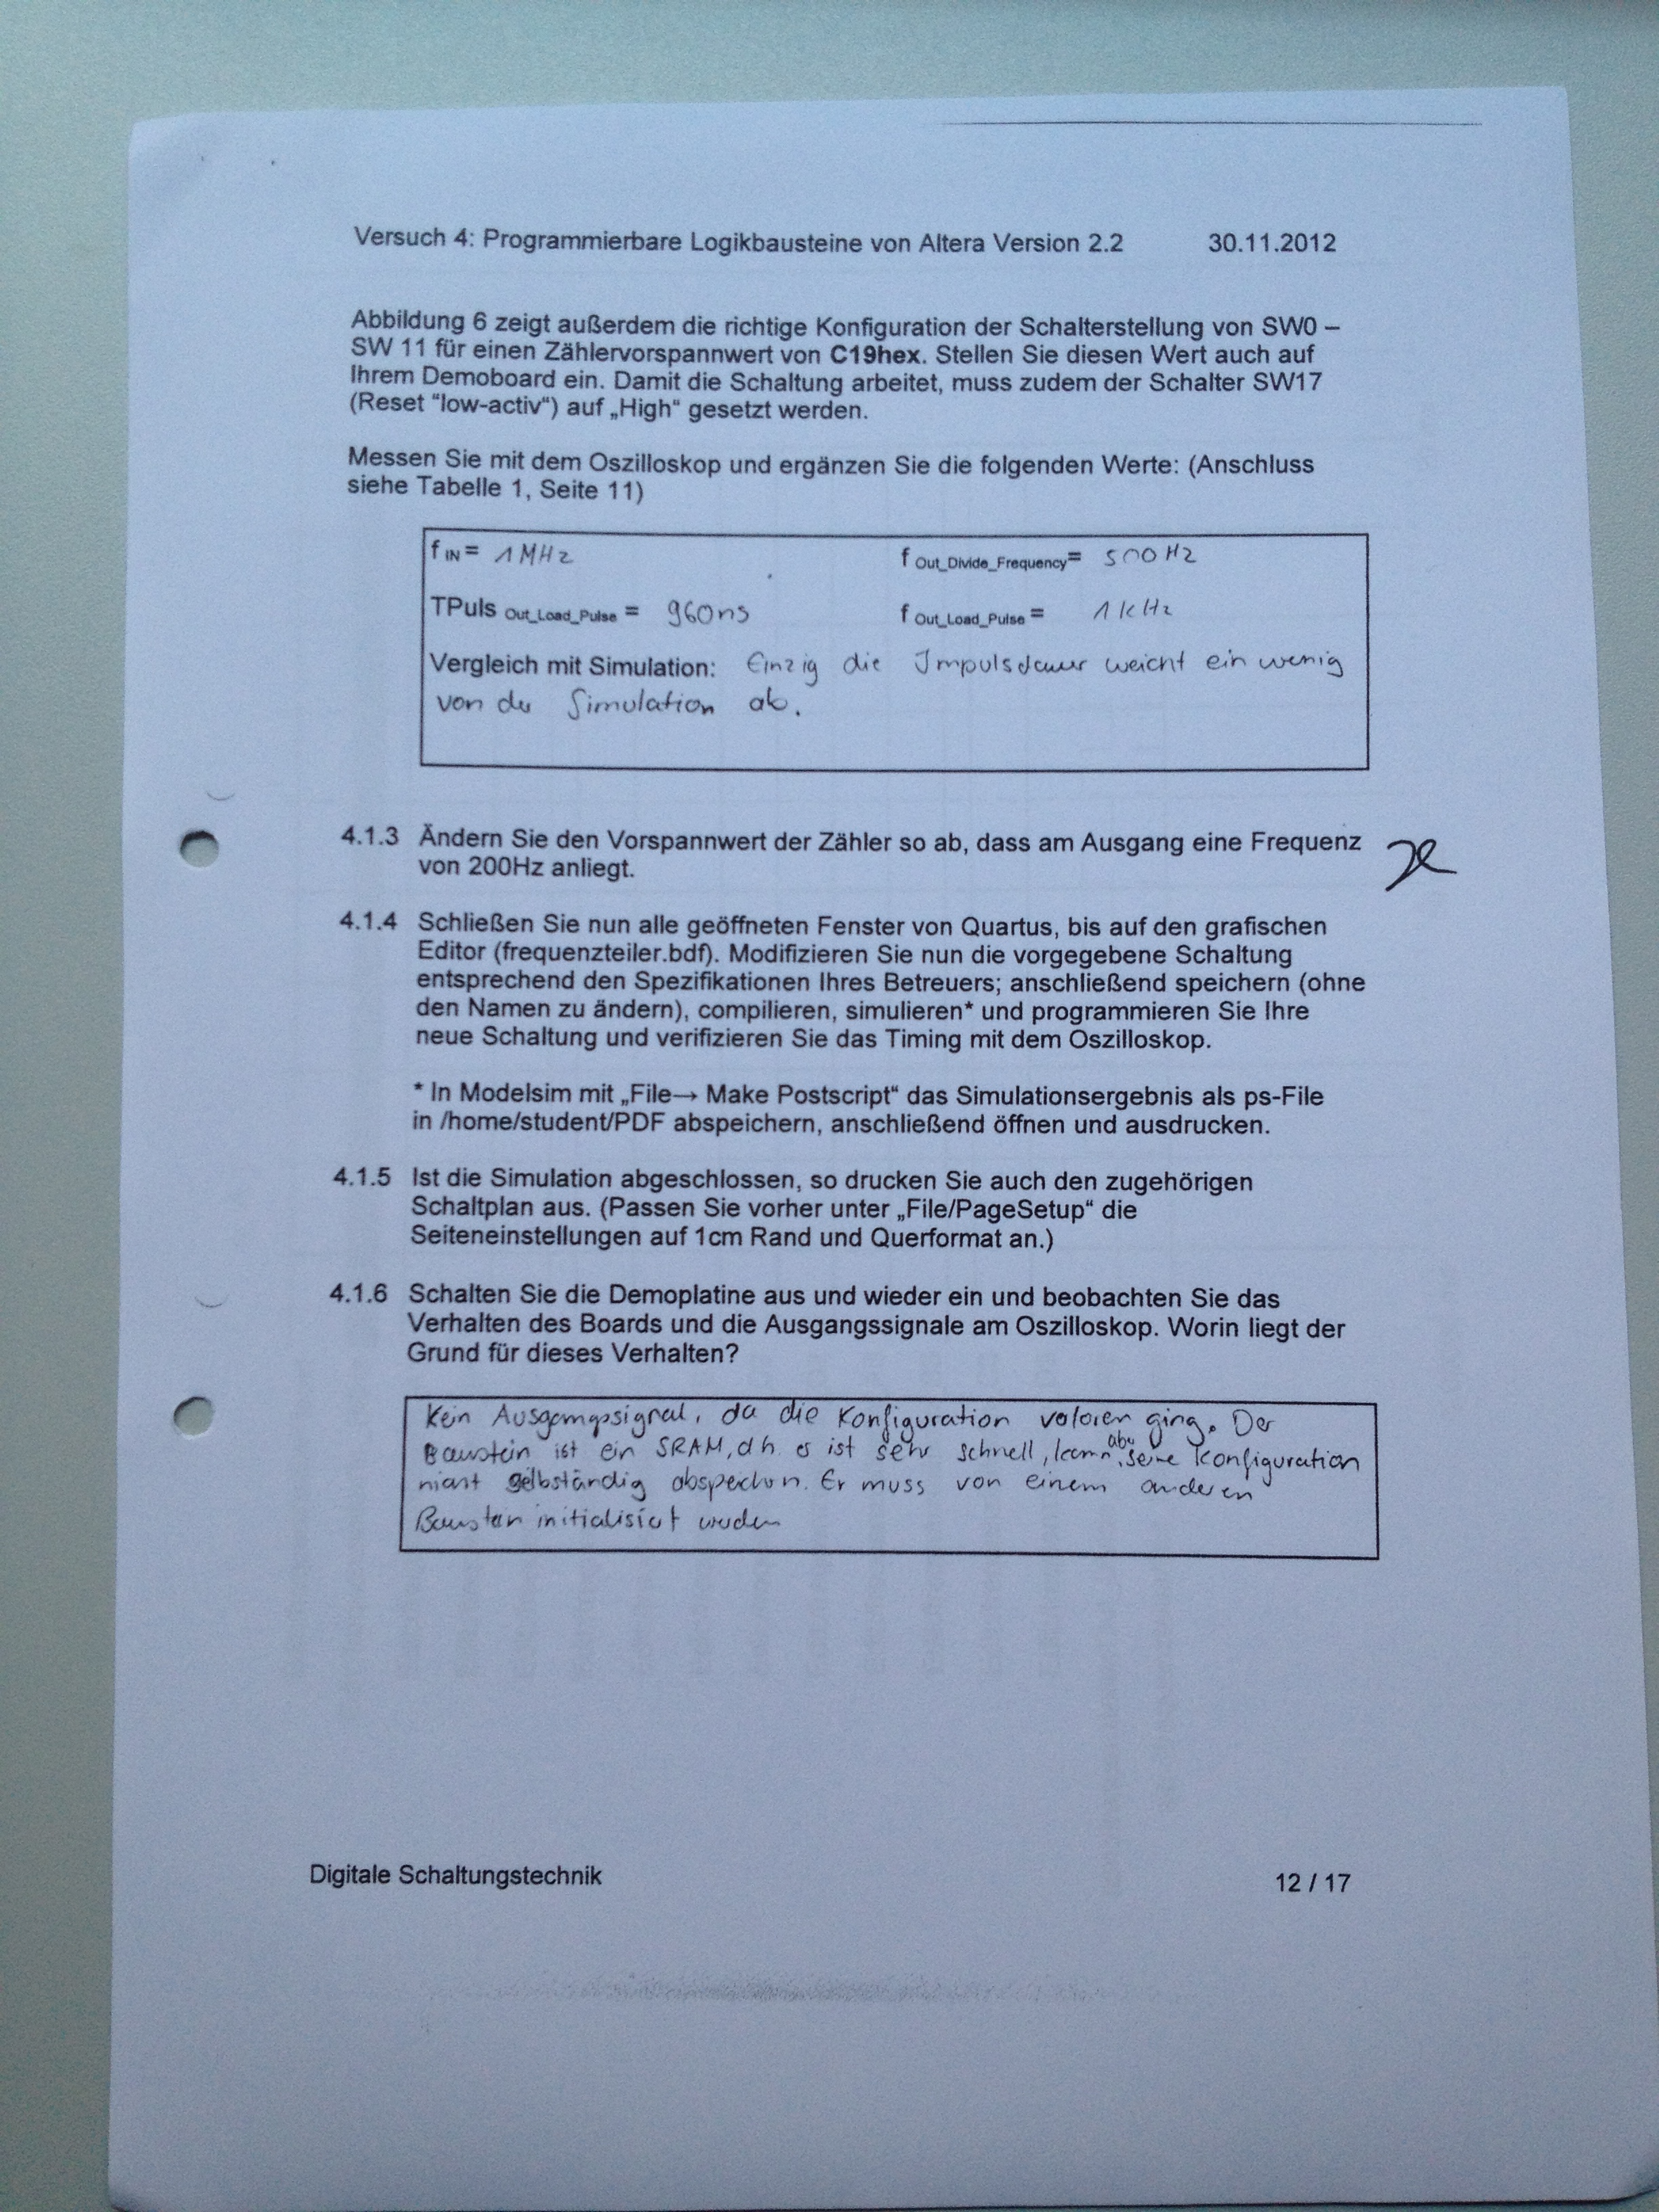 Versuch 4: Programmierbare Logikbausteine von Altera Version 2.2 30.11.2012
Abbildung 6 zeigt außerdem die richtige Konfiguration der Schalterstellung von SW0 –
SW 11 für einen Zählervorspannwert von C19hex. Stellen Sie diesen Wert auch auf
Ihrem Demoboard ein. Damit die Schaltung arbeitet, muss zudem der Schalter SW17
(Reset “low-activ“) auf „High“ gesetzt werden.
Messen Sie mit dem Oszilloskop und ergänzen Sie die folgenden Werte: (Anschluss
siehe Tabelle 1, Seite 11)
f IN = 1 MHz f Out_Divide_Frequency= 500 Hz
TPuls Out_Load_Pulse = 960ns f Out_Load_Pulse = 1 kHz
Vergleich mit Simulation: Einzig die Impulsdauer weicht ein wenig
von der Simulation ab.
4.1.3 Ändern Sie den Vorspannwert der Zähler so ab, dass am Ausgang eine Frequenz
von 200Hz anliegt.
4.1.4 Schließen Sie nun alle geöffneten Fenster von Quartus, bis auf den grafischen
Editor (frequenzteiler.bdf). Modifizieren Sie nun die vorgegebene Schaltung
entsprechend den Spezifikationen Ihres Betreuers; anschließend speichern (ohne
den Namen zu ändern), compilieren, simulieren* und programmieren Sie Ihre
neue Schaltung und verifizieren Sie das Timing mit dem Oszilloskop.
* In Modelsim mit „File→ Make Postscript“ das Simulationsergebnis als ps-File
in /home/student/PDF abspeichern, anschließend öffnen und ausdrucken.
4.1.5 Ist die Simulation abgeschlossen, so drucken Sie auch den zugehörigen
Schaltplan aus. (Passen Sie vorher unter „File/PageSetup“ die
Seiteneinstellungen auf 1cm Rand und Querformat an.)
4.1.6 Schalten Sie die Demoplatine aus und wieder ein und beobachten Sie das
Verhalten des Boards und die Ausgangssignale am Oszilloskop. Worin liegt der
Grund für dieses Verhalten?
Kein Ausgangssignal, da die Konfiguration verloren ging. Der
Baustein ist ein SRAM, d.h. es ist sehr schnell, kann aber seine Konfiguration
nicht selbständig abspeichern. Er muss von einem anderen
Baustein initialisiert werden
Digitale Schaltungstechnik 12 / 17